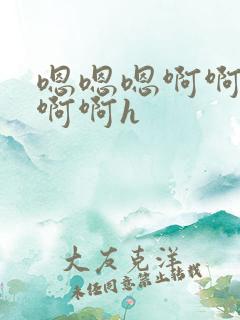 嗯嗯嗯啊啊
啊啊h
大友克洋
未经同意禁止转载